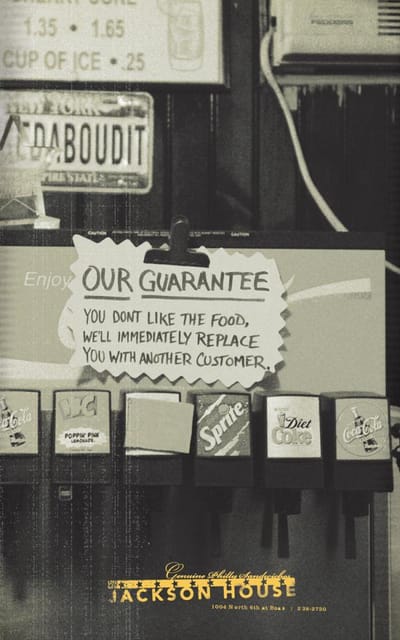 1.35 • 1.65
CUP OF ICE • .25
NEW YORK
EDABOUDIT
EMPIRE STATE
CAUTION
CAUTION
Enjoy
OUR GUARANTEE
YOU DONT LIKE THE FOOD,
WE'LL IMMEDIATELY REPLACE
YOU WITH ANOTHER CUSTOMER.
Coca-Cola
POPPIN' PINK
LEMONADE.
Sprite
Diet
Coke
Coca-Cola
Genuine Philly Sandwiches
JACKSON HOUSE
1004 North 6th at Boas | 238-2730